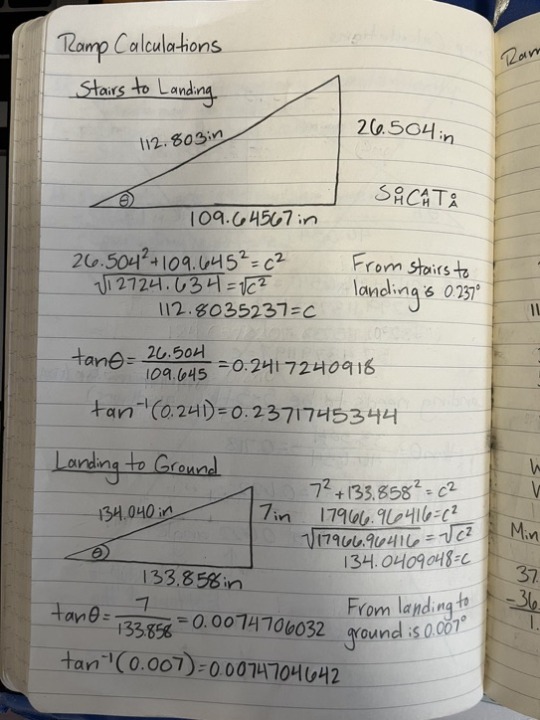 Ramp Calculations
Stairs to Landing
112.803in
26.504in
θ
109.64567in
SOH CAH TOA
26.504²+109.645²=c²
√12724.634=√c²
112.8035237=c
From stairs to
landing is 0.237°
tanθ= 26.504/109.645 =0.2417240918
tan⁻¹(0.241)=0.2371745344
Landing to Ground
134.040in
7in
θ
133.858in
7²+133.858²=c²
17966.96416=c²
√17966.96416=√c²
134.0409048=c
tanθ= 7/133.858 =0.0074706032
From landing to
ground is 0.007°
tan⁻¹(0.007)=0.0074704642
Ram
Min
37
-36
1.